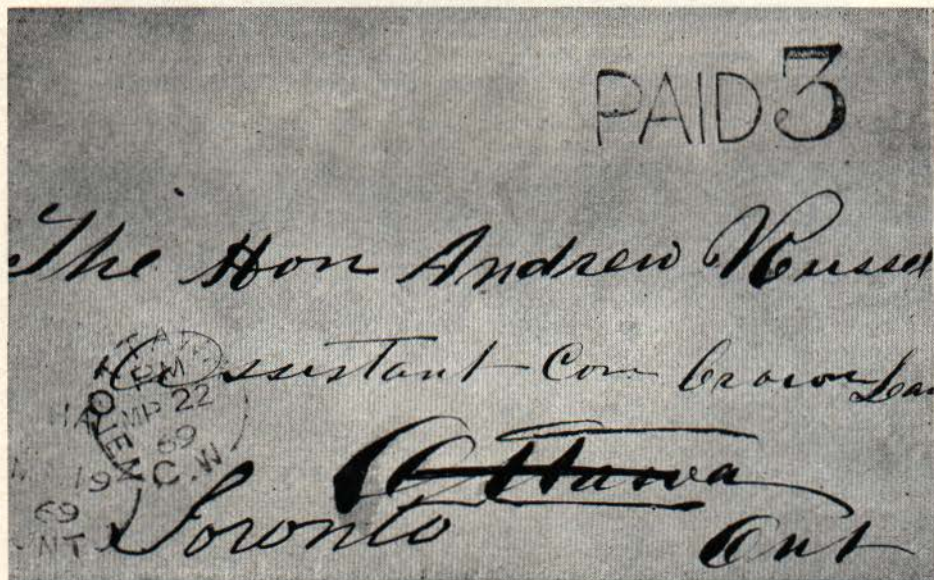 PAID 3
The Hon Andrew Russel
Assistant Com Crown Lan
Ottawa
Toronto
Ont
PM
22
69
C.W.
19
69
NT